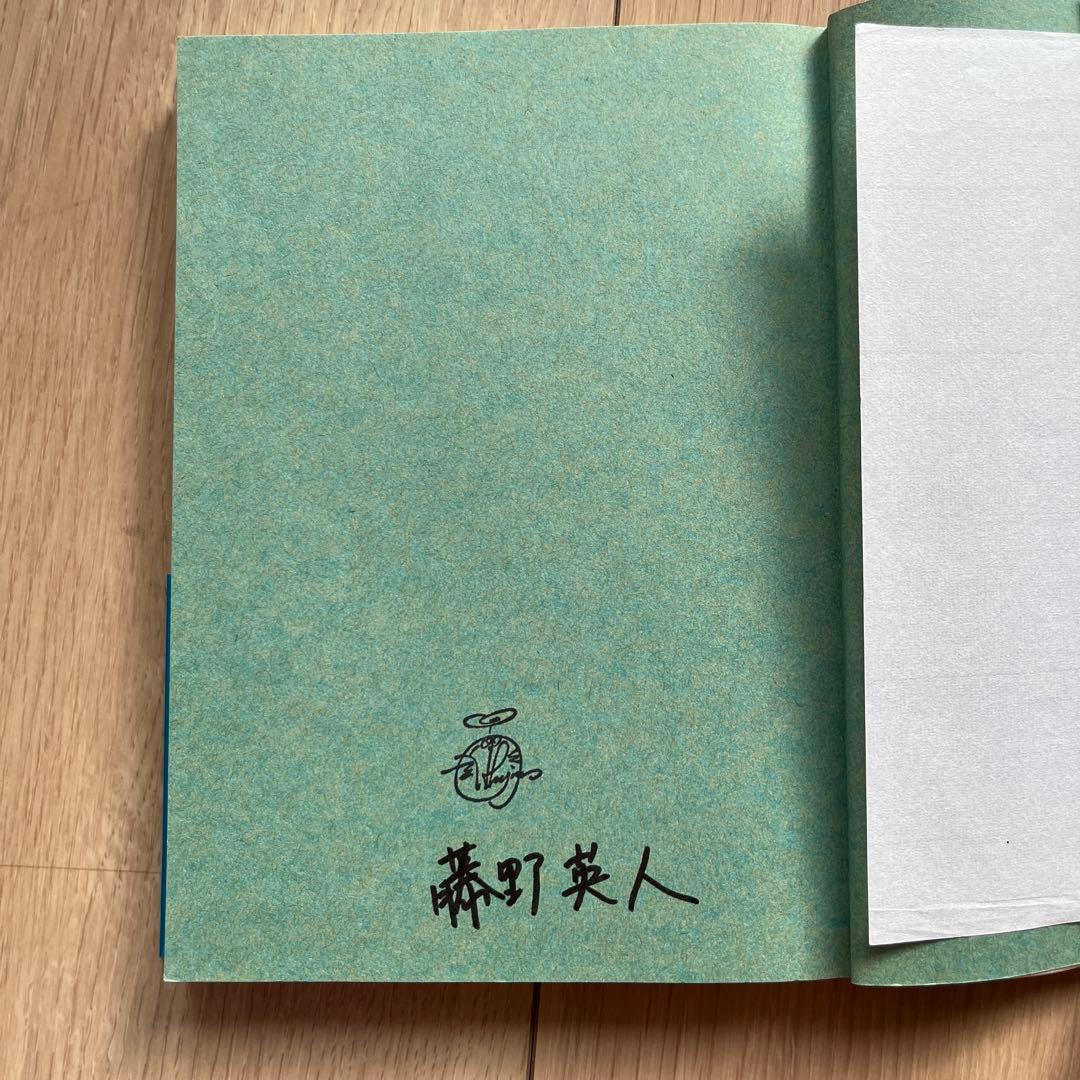 藤野英人